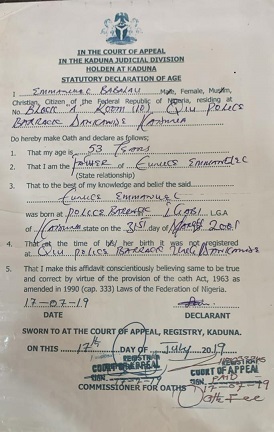 IN THE COURT OF APPEAL
IN THE KADUNA JUDICIAL DIVISION
HOLDEN AT KADUNA
STATUTORY DECLARATION OF AGE
I EMMANUEL BABALAU Male, Female, Muslim,
Christian, Citizen of the Federal Republic of Nigeria, residing at
No. BLOCK A ROOM POLICE
BARRACK KADUNA
Do hereby make Oath and declare as follows;
1. That my age is 53 Years
2. That I am the FATHER of EUNICE EMMANUEL
(State relationship)
3. That to the best of my knowledge and belief the said
EUNICE EMMANUEL
was born at POLICE BARRACK L.G.A
of KADUNA state on the 31st day of 2001
4. That at the time of his/ her birth it was not registered
at POLICE BARRACK
5. That I make this affidavit conscientiously believing same to be true
and correct by virtue of the provision of the oath Act, 1963 as
amended in 1990 (cap. 333) Laws of the Federation of Nigeria.
17-07-19
DATE DECLARANT
SWORN TO AT THE COURT OF APPEAL, REGISTRY, KADUNA.
ON THIS 17th DAY OF July 2019
REGISTRY
COURT OF APPEAL
COURT OF APPEAL
PAID
17-07-19
COMMISSIONER FOR OATHS
Oath Fee